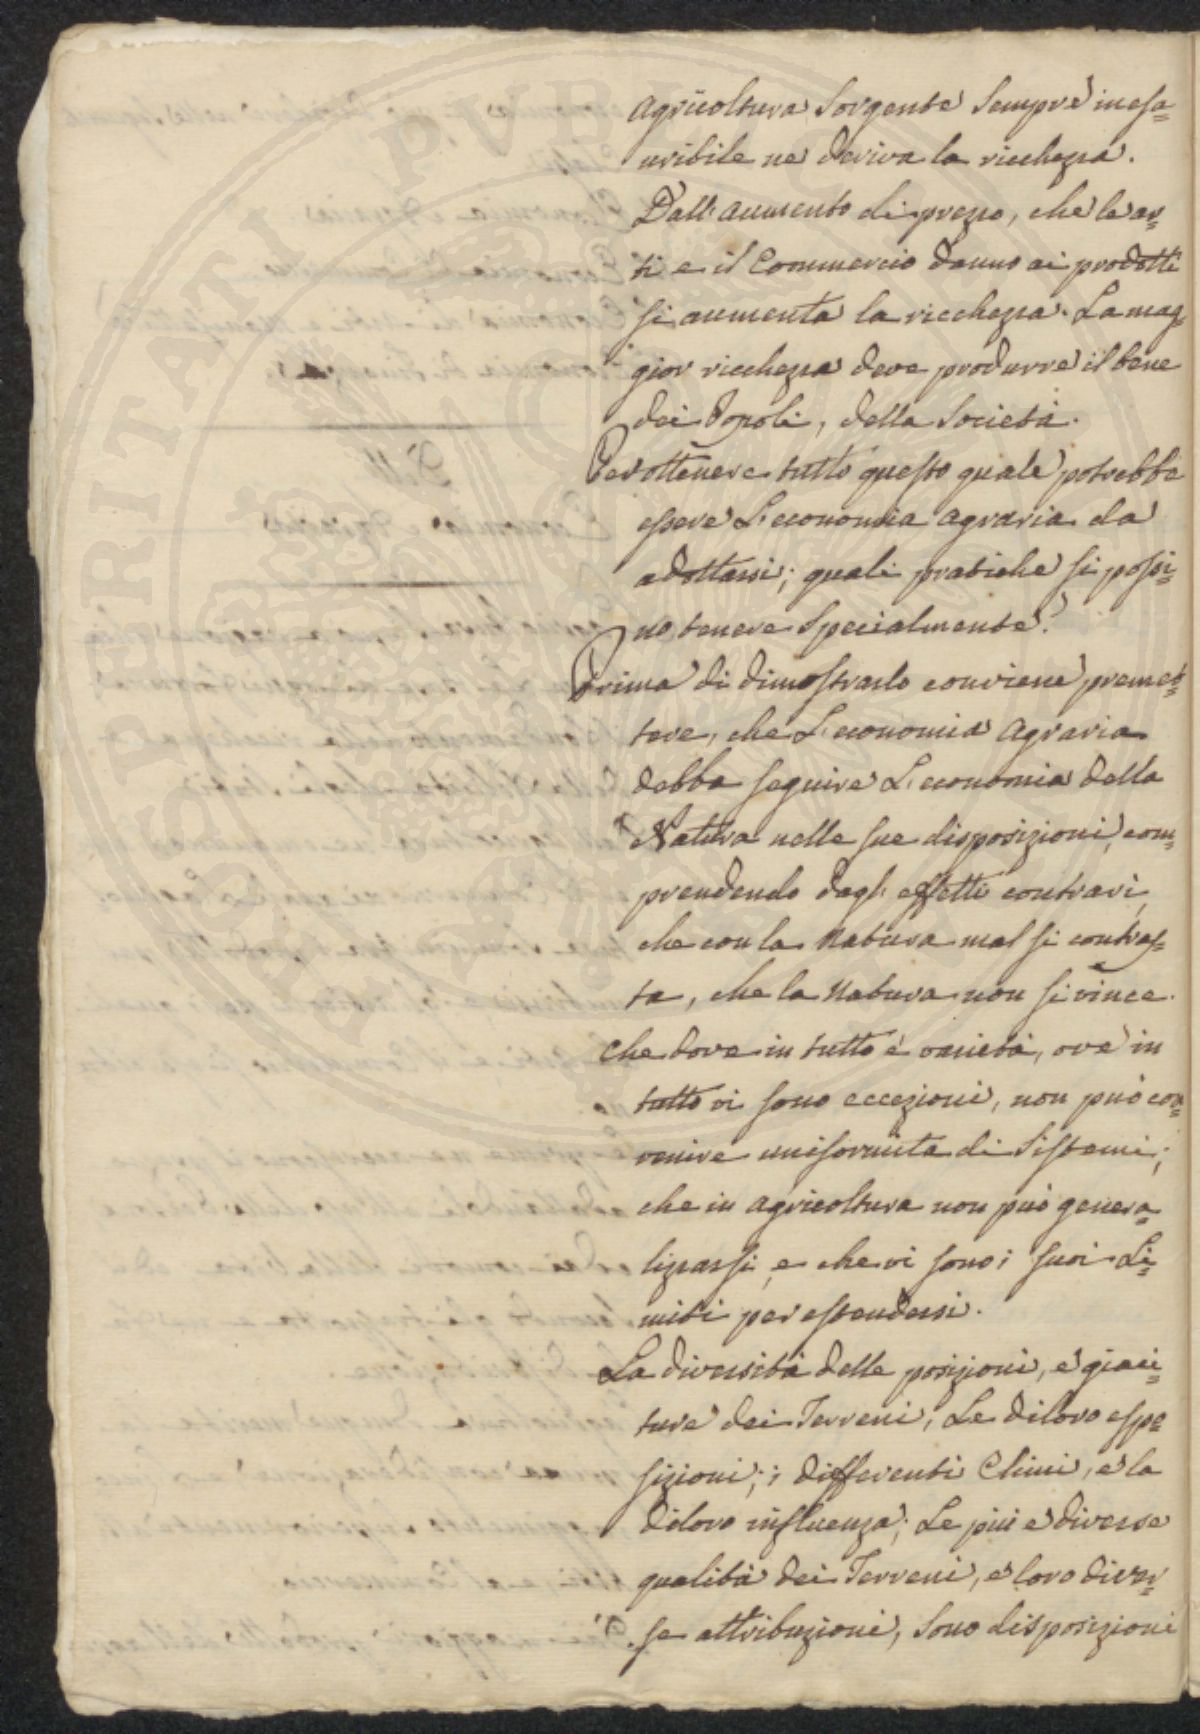 agricoltura sorgente sempre inesa=
uribile ne deriva la ricchezza.
Dall'aumento di prezzo, che le ar=
ti e il Commercio danno ai prodotti
si aumenta la ricchezza. La mag=
gior ricchezza deve produrre il bene
dei Popoli, della Società.
Per ottenere tutto questo quale potrebbe
essere L'economia agraria da
adottarsi; quali pratiche si possi=
no tenere specialmente?
Prima di dimostrarlo conviene premet=
tere, che L'economia agraria
debba seguire L'economia della
Natura nelle sue disposizioni, com=
prendendo dagli effetti contrari,
che con la Natura mal si contras=
ta, che la Natura non si vince.
Che dove in tutto è varietà, ove in
tutto vi sono eccezioni, non può con=
venire uniformità di Sistemi;
che in agricoltura non può genera=
lizzarsi, e che vi sono i suoi Li=
miti per estendersi.
La diversità delle posizioni, e giaci=
ture dei Terreni, Le diloro espo=
sizioni; i differenti Climi, e la
diloro influenza; Le più e diverse
qualità dei Terreni, e loro diver=
se attribuzioni, sono disposizioni
PROSPERITATI PVBLICAE